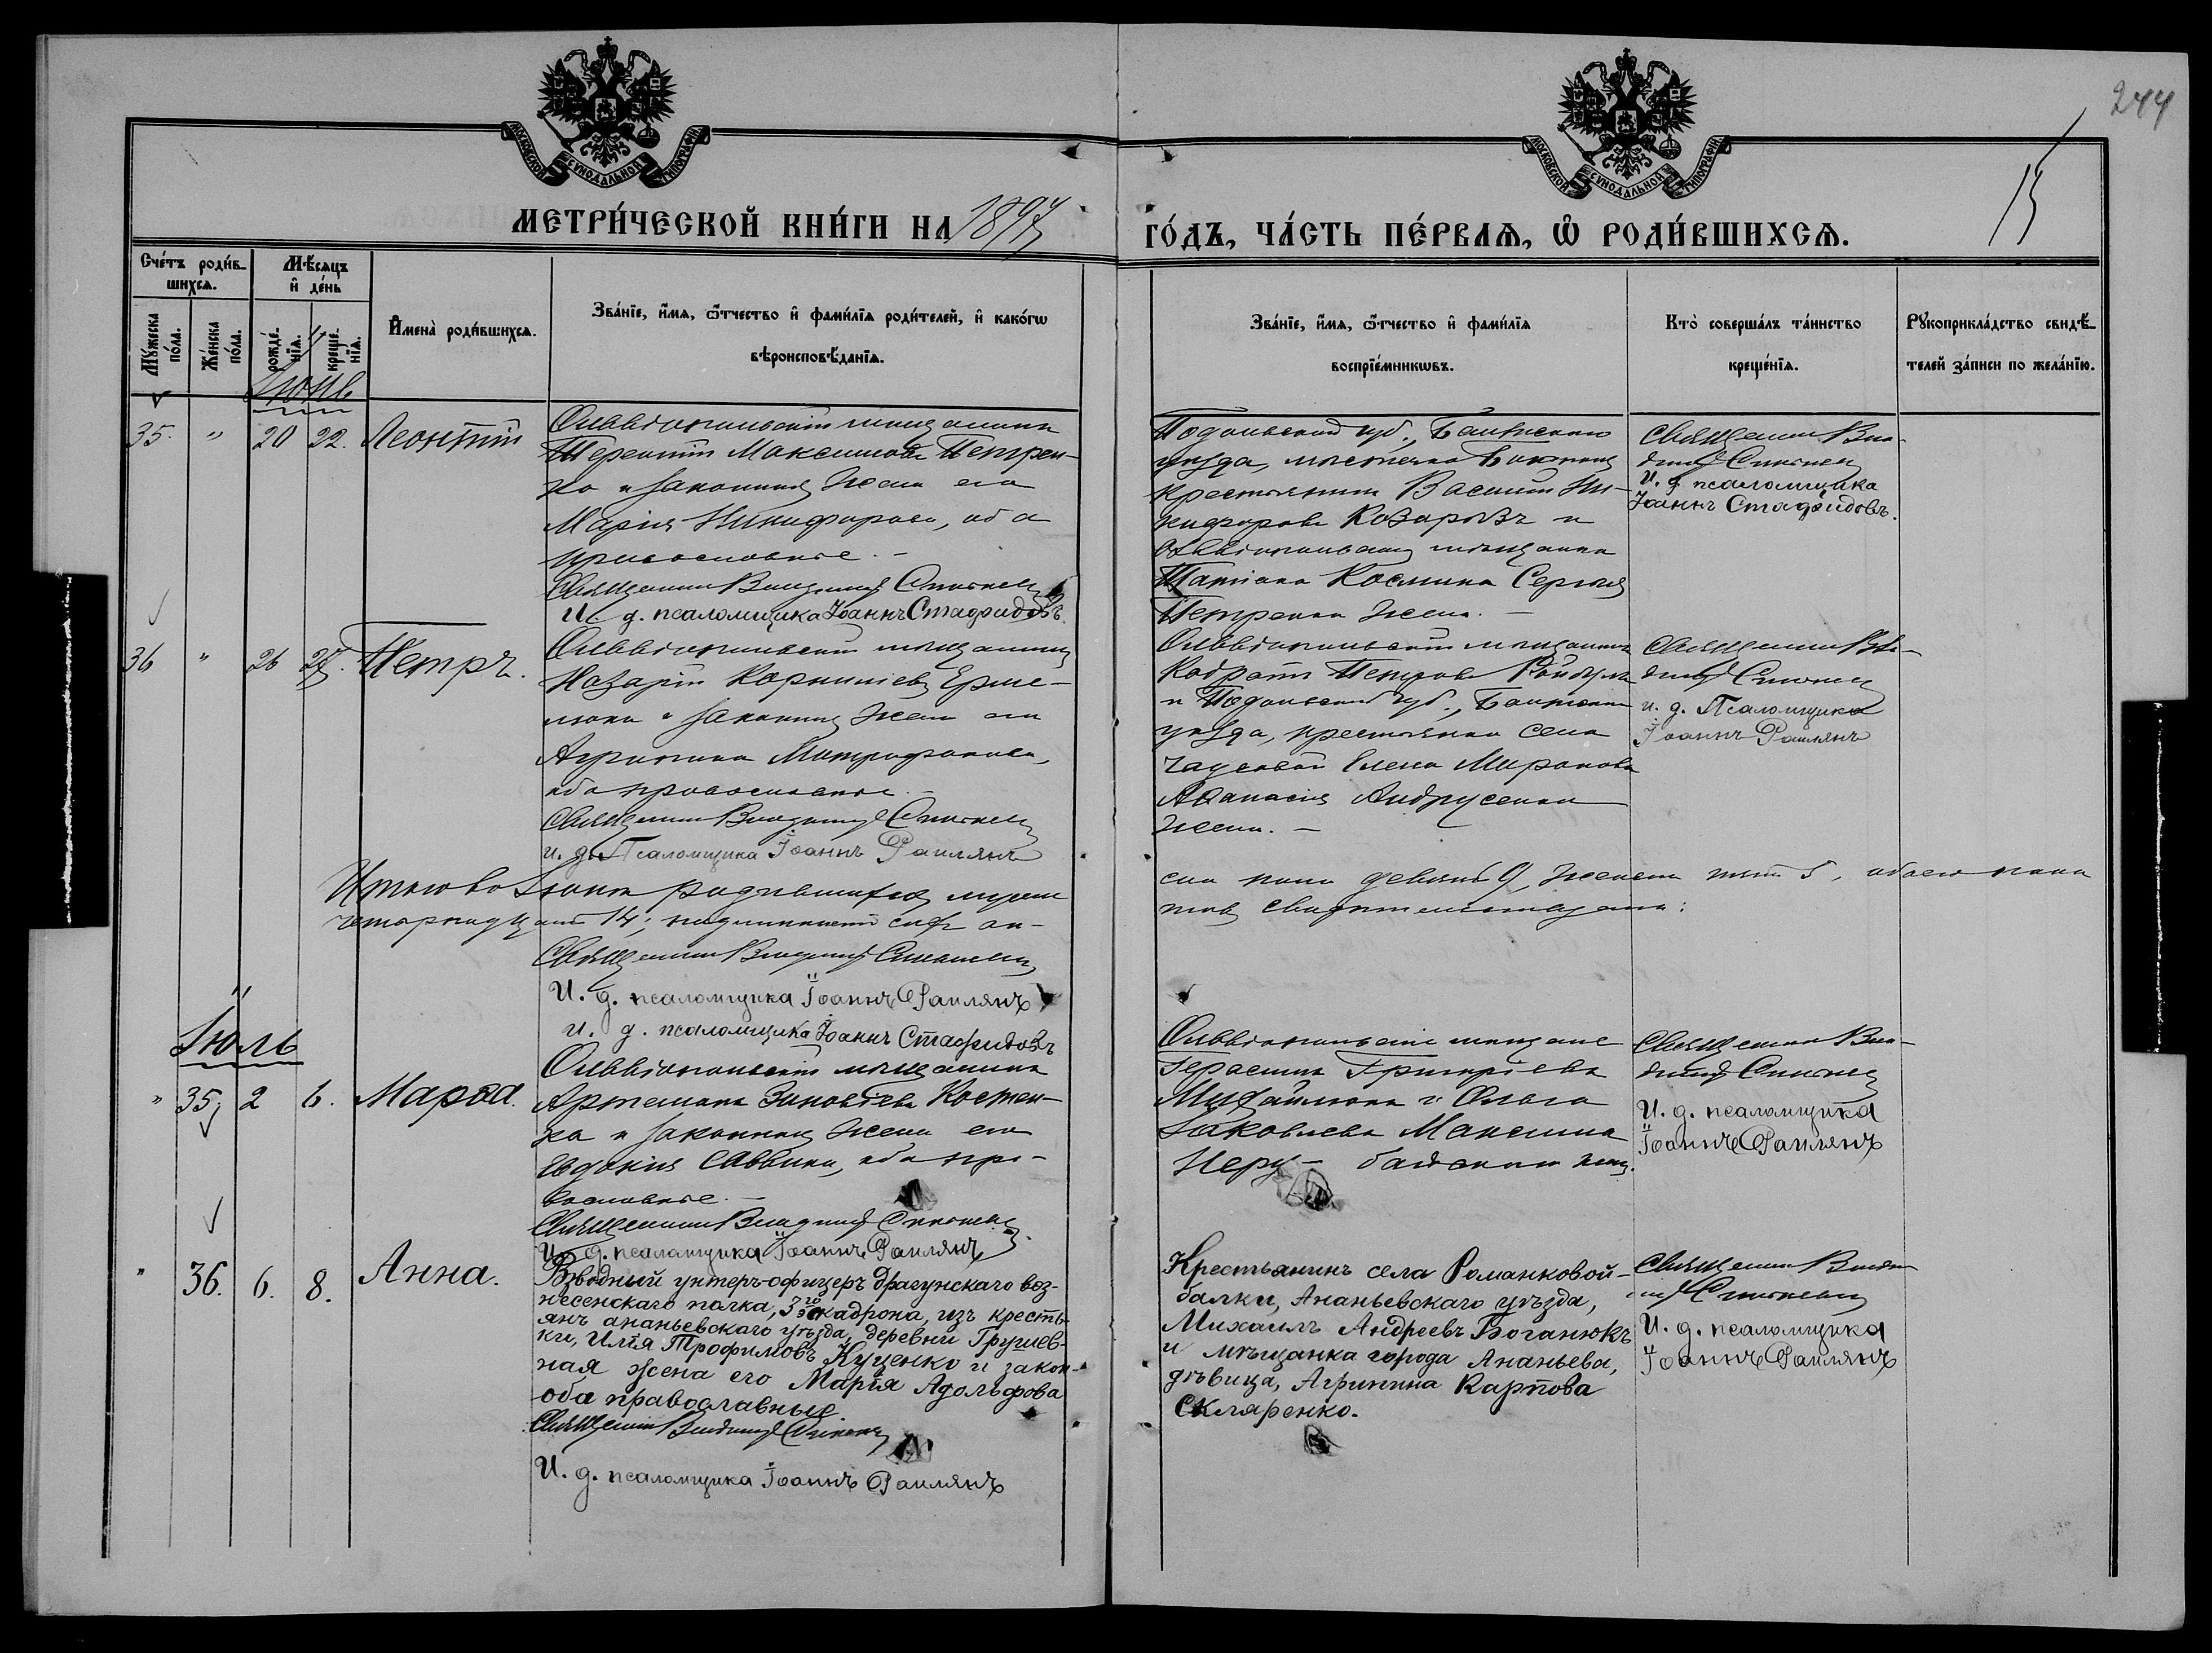 244
15
МОСКОВСКОЙ СУНОДАЛЬНОЙ ТИПОГРАФІИ
МОСКОВСКОЙ СУНОДАЛЬНОЙ ТИПОГРАФІИ
МЕТРИ́ЧЕСКОЙ КНИ́ГИ НА 1897
ГО́ДЪ, ЧА́СТЬ ПЕ́РВАѦ, Ѡ РОДИ́ВШИХСѦ.
Сче́тъ роди́в-
шихсѧ.
Мѣ́сѧцъ
и де́нь
Му́жеска
по́ла.
Же́нска
по́ла.
рожде́-
нїѧ.
креще́-
нїѧ.
Имена̀ роди́вшихсѧ.
Зва́нїе, и́мѧ, ѻ́тчество и фами́лїѧ роди́телей, и како́гѡ
вѣроисповѣ́данїѧ.
Зва́нїе, и́мѧ, ѻ́тчество и фами́лїѧ
воспрїе́мникѡвъ.
Кто̀ соверша́лъ та́инство
креще́нїѧ.
Рꙋкоприкла́дство свидѣ́-
телей за́писи по жела́нїю.
Іюнь
35. " 20 22. Леонтій
Ольвіопольскій мещанинъ
Терентій Максимовъ Петрен-
ко и законная жена его
Марія Никифорова, оба
православные. -
Священникъ Владиміръ
И. д. псаломщика Іоаннъ Стафидовъ.
Подольской губ., Балтскаго
уѣзда, мѣстечка
крестьянинъ Василій Ни-
кифоровъ и
Ольвіопольская мещанка
Татіана Косьмина Сергія
Петренка жена. -
Священникъ Вла-
диміръ
И. д. псаломщика
Іоаннъ Стафидовъ.
36 " 26 27. Петръ.
Ольвіопольскій мещанинъ
Назарій Корниліевъ Ерме-
и законная жена его
Агрипина Митрофанова,
оба православные. -
Священникъ Владиміръ
и. д. Псаломщика Іоаннъ Раилянъ
Ольвіопольскій мещанинъ
Кодратъ Петровъ
и Подольской губ., Балтскаго
уѣзда, крестьянка села
Елена Миронова
Аѳанасія Андрусенка
жена. -
Священникъ Вла-
диміръ
и. д. Псаломщика
Іоаннъ Раилянъ
Итого во Іюнѣ родившихся муже-
ска пола девять 9, женска пять 5, обоего пола
четырнадцать 14; подлинность сихъ ак-
товъ свидетельствуемъ:
Священникъ Владиміръ
И. д. псаломщика Іоаннъ Раилянъ
и. д. псаломщика Іоаннъ Стафидовъ
Іюль
" 35. 2 6. Марѳа.
Ольвіопольскій мещанинъ
Артемонъ Зиновіевъ Костен-
ко и законная жена его
Евдокія Саввина, оба пра-
вославные. -
Священникъ Владиміръ
И. д. псаломщика Іоаннъ Раилянъ.
Ольвіопольскіе мещане
Герасимъ Григоріевъ
Михайлюкъ и Ольга
Іаковлева Максима
Неру- байскаго жена.
Священникъ Вла-
диміръ
И. д. псаломщика
Іоаннъ Раилянъ
" 36. 6. 8. Анна.
Взводный унтеръ-офицеръ драгунскаго воз-
несенскаго полка, 3го эскадрона, изъ кресть-
янъ ананьевскаго уѣзда, деревни Грушев-
ки, Илія Трофимовъ Куценко и закон-
ная жена его Марія Адольфова
оба православные.
Священникъ Владиміръ
И. д. псаломщика Іоаннъ Раилянъ
Крестьянинъ села Романковой-
балки, Ананьевскаго уѣзда,
Михаилъ Андреевъ Боганюкъ
и мѣщанка города Ананьева,
дѣвица, Агрипина Карпова
Скляренко.
Священникъ Влади-
міръ
И. д. псаломщика
Іоаннъ Раилянъ